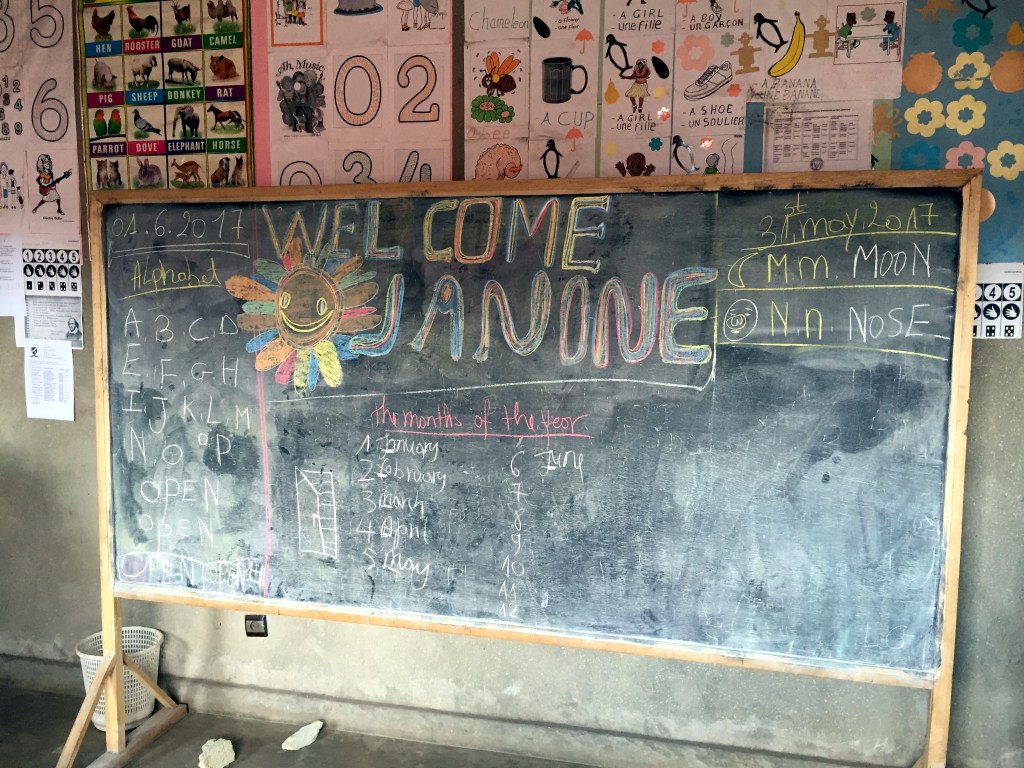 HEN ROOSTER GOAT CAMEL
PIG SHEEP DONKEY RAT
PARROT DOVE ELEPHANT HORSE
5
6
0 2
3 4
Chameleon
A CUP
- A GIRL
- une fille
- A GIRL
- une fille
- A BOY
- un GARÇON
- A SHOE
- un SOULIER
- A BANANA
1 2 3 4 5
4 5
01.6.2017
Alphabet
A B C D
E F G H
I J K L M
N O O P
OPEN
OPEN
OPEN OPEN
WELCOME
JANINE
31st may 2017
M m. MOON
N n NOSE
the months of the year
1 January
2 February
3 March
4 Apni
5 May
6 June
7
8
9
10
11
12